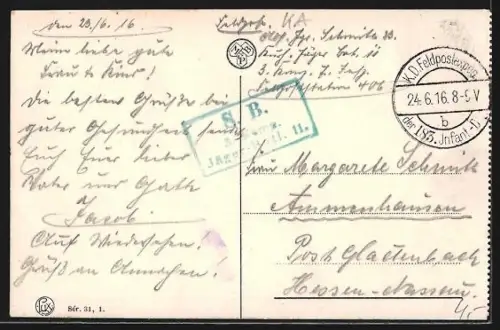 den 23./6. 16.
Meine liebe gute
Frau u. Kind!
Die besten Grüße bei
guter Gesundheit sendet
Euch Euer lieber
Vater und Gatte
Jacob
Auf Wiedersehen!
Gruß an Annchen!
Ser. 31, 1.
Feldpost. KA
Abs. Jgr. Schmitz
3. Komp.
Feldpoststation 406
S. B.
3. Komp.
Jäger-Batl. 11.
K.D. Feldpostexped.
24.6.16. 8-9 V
b
der 185. Infant.-D.
Frau Margarete Schmitz
Ammenhausen
Post Gladenbach
Hessen-Nassau